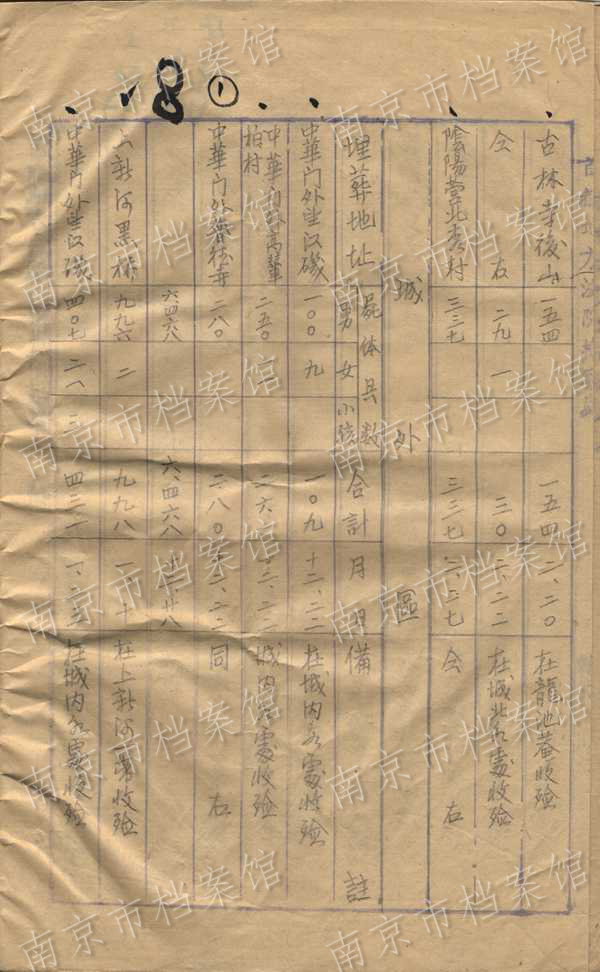 8 ①
古林寺後山 一五四 一五四 二、二〇 在龍池菴收殮
仝右 二九 一 三〇 二、二二 在城北各處收殮
陰陽營北秀村 三三七 三三七 二、二七 仝右
城外區
埋葬地址 屍体具数 男 女 小孩 合計 月日 備註
中華门外望江磯 一〇〇 九 一〇九 十二、二二 在城内各處收殮
中華门外高輦柏村 二五〇 一一 二六一 二、二二 城内各處收殮
中華门外普德寺 二八〇 二八〇 十二、二二 同右
六、四六八 六、四六八 十二、廿八
上新河黑橋 九九六 二 九九八 一、十 在上新河一帶收殮
中華门外望江磯 四〇七 二一 三 四三一 一、二三 在城内各處收殮
南京市档案馆